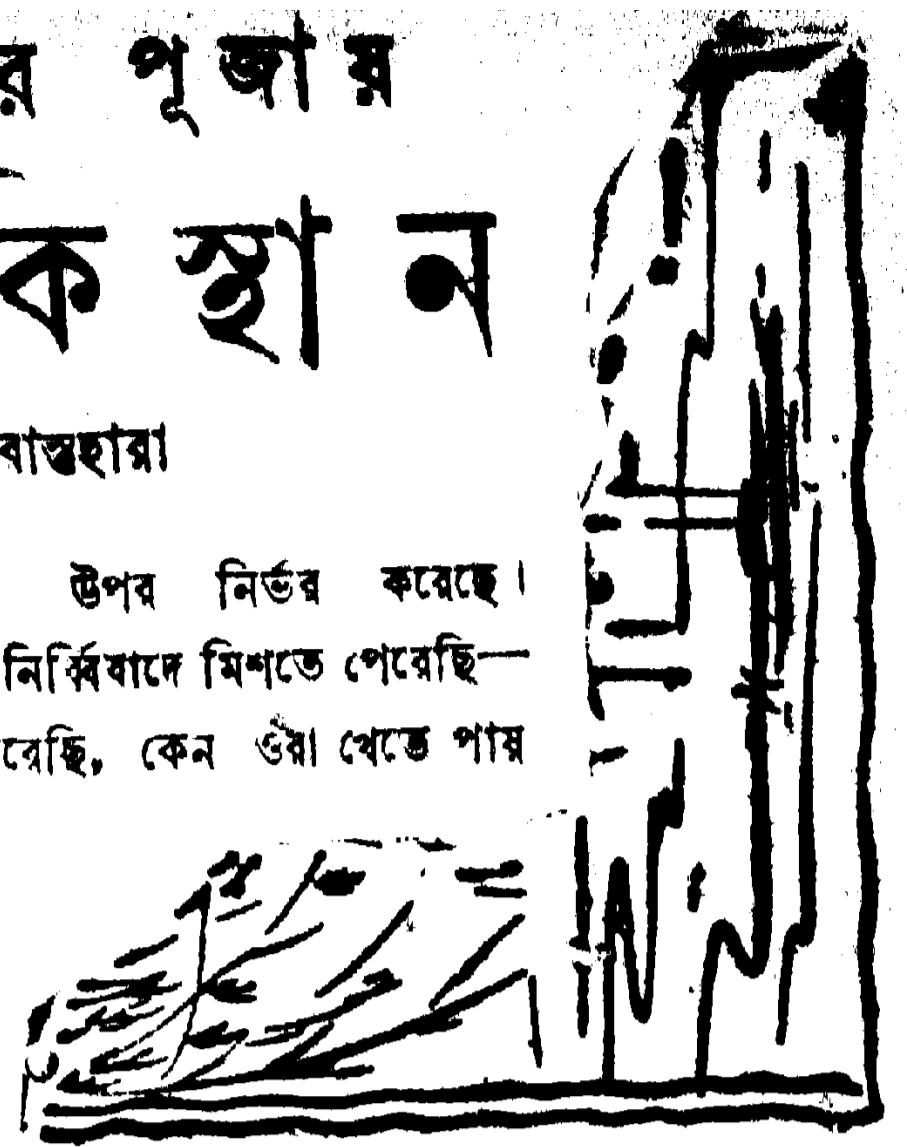 র পূজায়
কস্থান
বাস্তুহারা
উপর নির্ভর করেছে।
নির্ব্বিবাদে মিশতে পেরেছি—
রেছি, কেন ওঁরা খেতে পায়